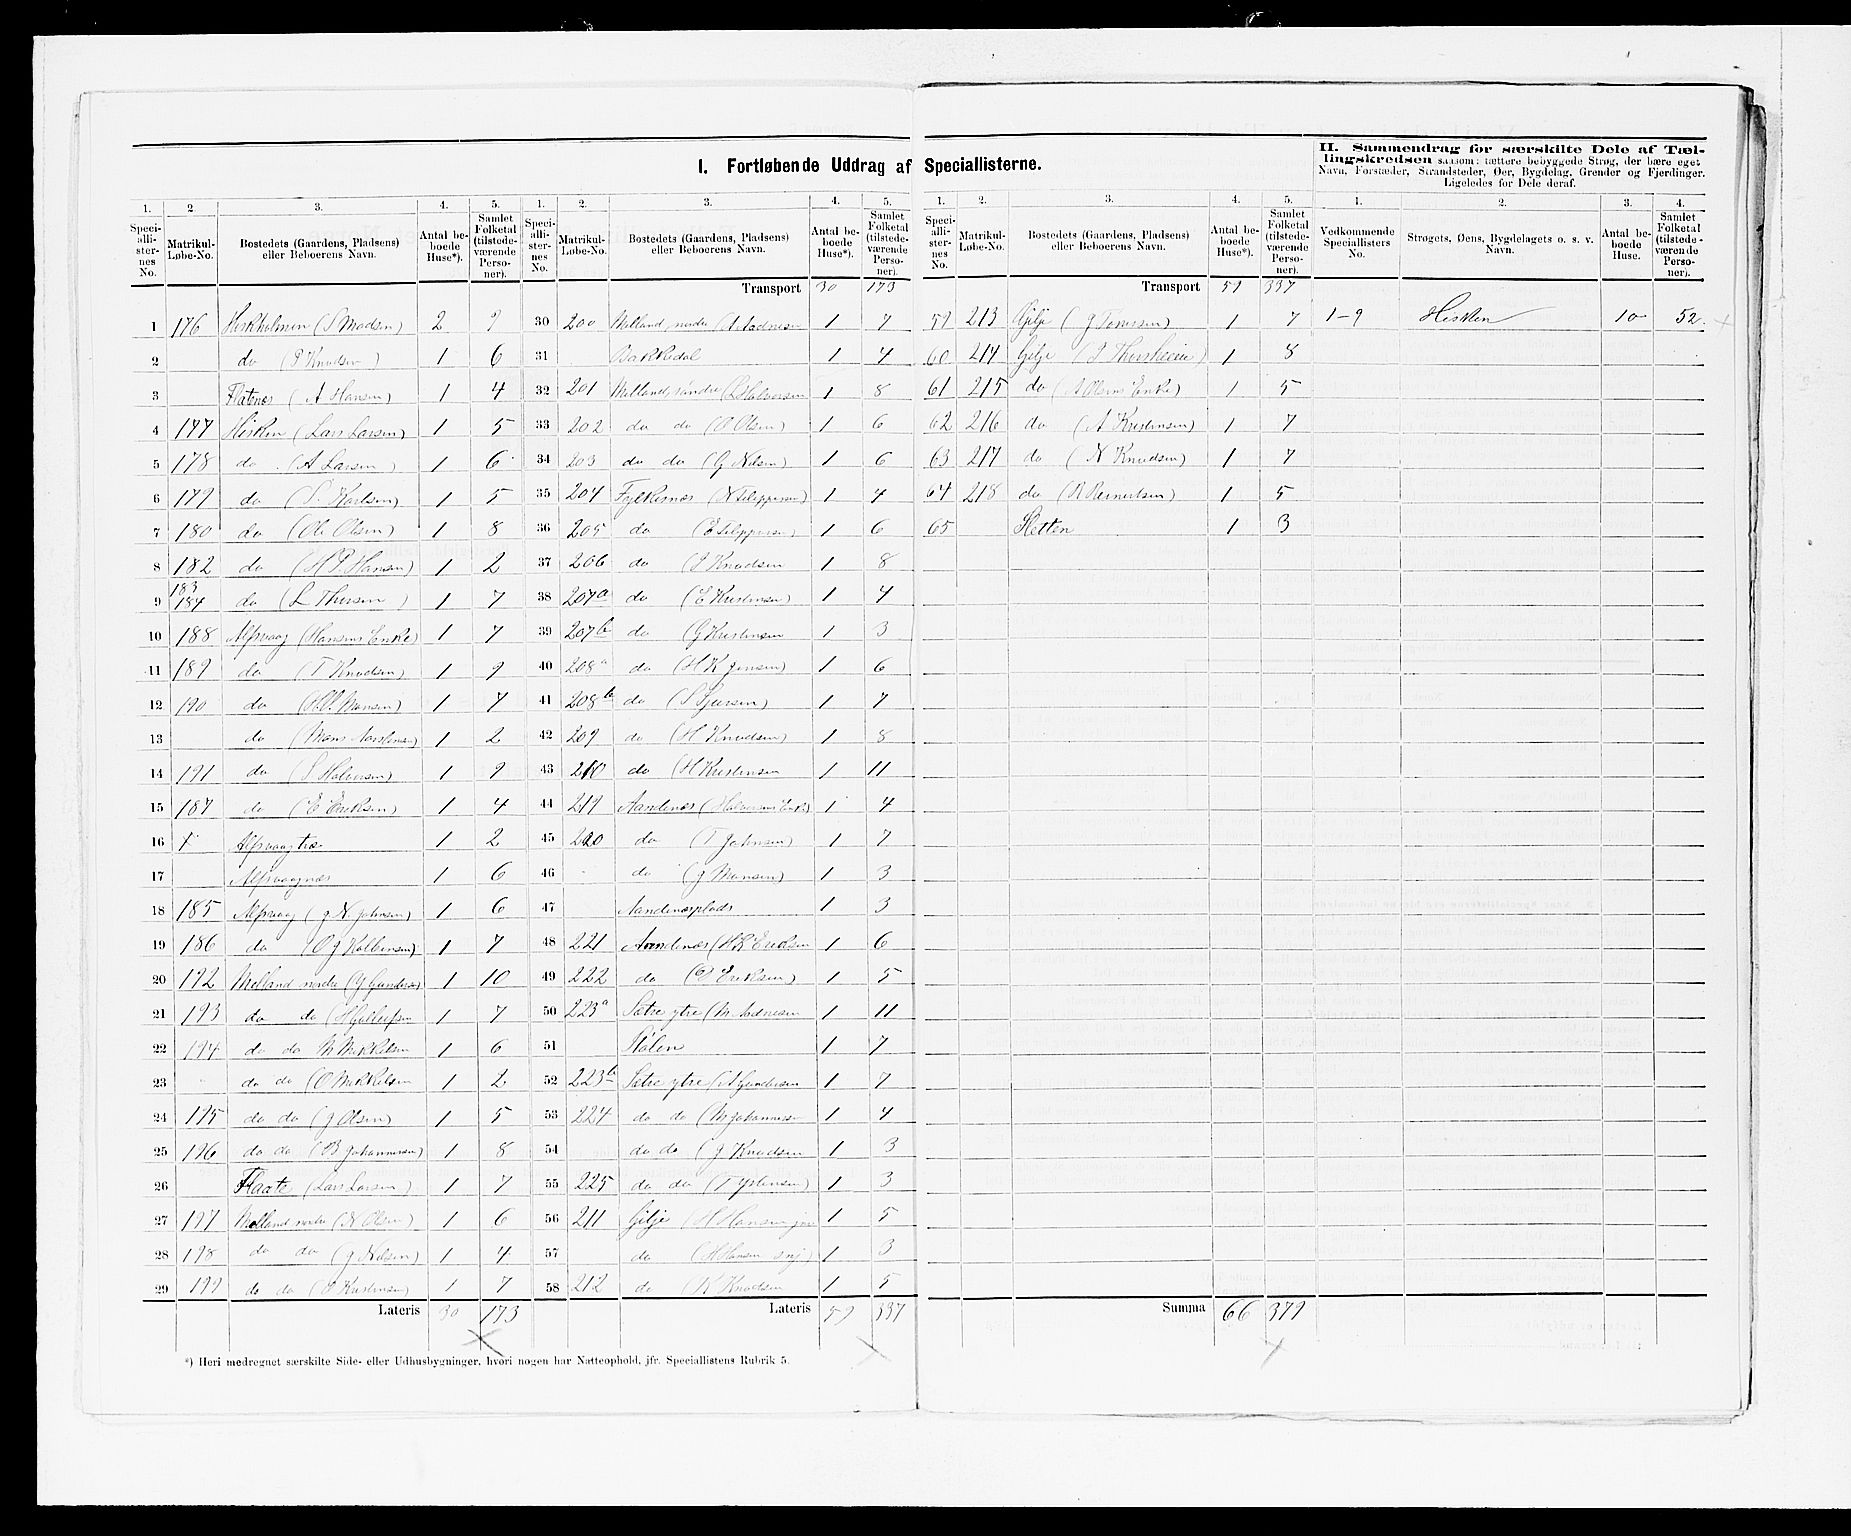 I. Fortløbende Uddrag af Speciallisterne.
II. Sammendrag for særskilte Dele af Tæl-
lingskredsen saasom: tættere bebyggede Strøg, der bære eget
Navn, Forstæder, Strandsteder, Øer, Bygdelag, Grender og Fjerdinger.
Ligeledes for Dele deraf.
1. 2 3. 4. 5.
Speci-alli-ster-nes No. Matrikul-Løbe-No. Bostedets (Gaardens, Pladsens) eller Beboerens Navn. Antal be-boede Huse*). Samlet Folketal (tilstede-værende Perso-ner).
1 176 Hiskholmen (S Madsen) 2 9
2 do (P Knudsen) 1 6
3 Flatenæs (A Hansen) 1 4
4 177 Hisken (Lars Larsen) 1 5
5 178 do (A Larsen) 1 6
6 179 do (S. Karlsen) 1 5
7 180 do (Ole Olsen) 1 8
8 182 do (H P. Hansen) 1 2
9 183 184 do (L Thorsen) 1 7
10 188 Alfsvaag (Hansens Enke) 1 7
11 189 do (T Knudsen) 1 9
12 190 do (Monsen) 1 7
13 do (Mons) 1 2
14 191 do (S Halvorsen) 1 9
15 187 do (E Eriksen) 1 4
16 Alfsvaagtræ 1 2
17 Alfsvaagnæs 1 6
18 185 Alfsvaag (J N. Johnsen) 1 6
19 186 do (O J Kolbensen) 1 7
20 192 Melland nordre (J Gundersen) 1 10
21 193 do do 1 7
22 194 do do M Mikkelsen 1 6
23 do do (O Mikkelsen 1 2
24 195 do do (J Olsen) 1 5
25 196 do do (B Johannessen) 1 8
26 Flaate (Lars Larsen) 1 7
27 197 Melland nordre (N Olsen) 1 6
28 198 do do (J Nilsen) 1 4
29 199 do do (P Kristensen) 1 7
Lateris 30 173
*) Heri medregnet særskilte Side- eller Udhusbygninger, hvori nogen har Natteophold, jfr. Speciallistens Rubrik 5.
1. 2. 3. 4. 5.
Speci-alli-ster-nes No. Matrikul-Løbe-No. Bostedets (Gaardens, Pladsens) eller Beboerens Navn. Antal be-boede Huse*). Samlet Folketal (tilstede-værende Perso-ner).
Transport 30 173
30 200 Melland, nordre (A Aadnesen 1 7
31 Bakkedal 1 4
32 201 Melland, søndre (L Halvorsen 1 8
33 202 do do (O Olsen) 1 6
34 203 do do (G Nilsen) 1 6
35 204 Fylkesnæs (N Filippesen) 1 4
36 205 do (E Filippesen) 1 6
37 206 do (J Knudsen 1 8
38 207a do (E Kristensen) 1 4
39 207b do (J Kristensen 1 3
40 208a do (H K Jensen) 1 6
41 208b do (S Sjursen) 1 7
42 209 do (H Knudsen) 1 8
43 210 do (H Kristensen 1 11
44 219 Aandenæs (Halvorsens Enke) 1 4
45 220 do (T Johnsen) 1 7
46 do (J Monsen) 1 3
47 Aandenæsplads 1 3
48 221 Aandenæs (H K Eriksen 1 6
49 222 do (O Eriksen) 1 5
50 223a Sætre ytre (M Aadnesen 1 11
51 Stølen 1 7
52 223b Sætre ytre (A Gundersen 1 7
53 224 do do (M Johannessen 1 4
54 do do (J Knudsen 1 3
55 225 do do (T Østensen) 1 3
56 211 Gilje (H Hansen jun 1 5
57 do (H Hansen snj) 1 3
58 212 do (K Knudsen 1 5
Lateris 59 337
1. 2. 3. 4. 5.
Speci-alli-ster-nes No. Matrikul-Løbe-No. Bostedets (Gaardens, Pladsens) eller Beboerens Navn. Antal be-boede Huse*). Samlet Folketal (tilstede-værende Perso-ner).
Transport 59 337
59 213 Gilje (J Tønnesen) 1 7
60 214 Gilje (P Thorsheim) 1 8
61 215 do (A Olsens Enke) 1 5
62 216 do (A Kristensen) 1 7
63 217 do (N Knudsen) 1 7
64 218 do (R Reinertsen) 1 5
65 Sletten 1 3
Summa 66 379
1. 2. 3. 4.
Vedkommende Speciallisters No. Strøgets, Øens, Bygdelagets o. s. v. Navn. Antal be-boede Huse. Samlet Folketal (tilstede-værende Perso-ner).
1-9 Hisken 10 52